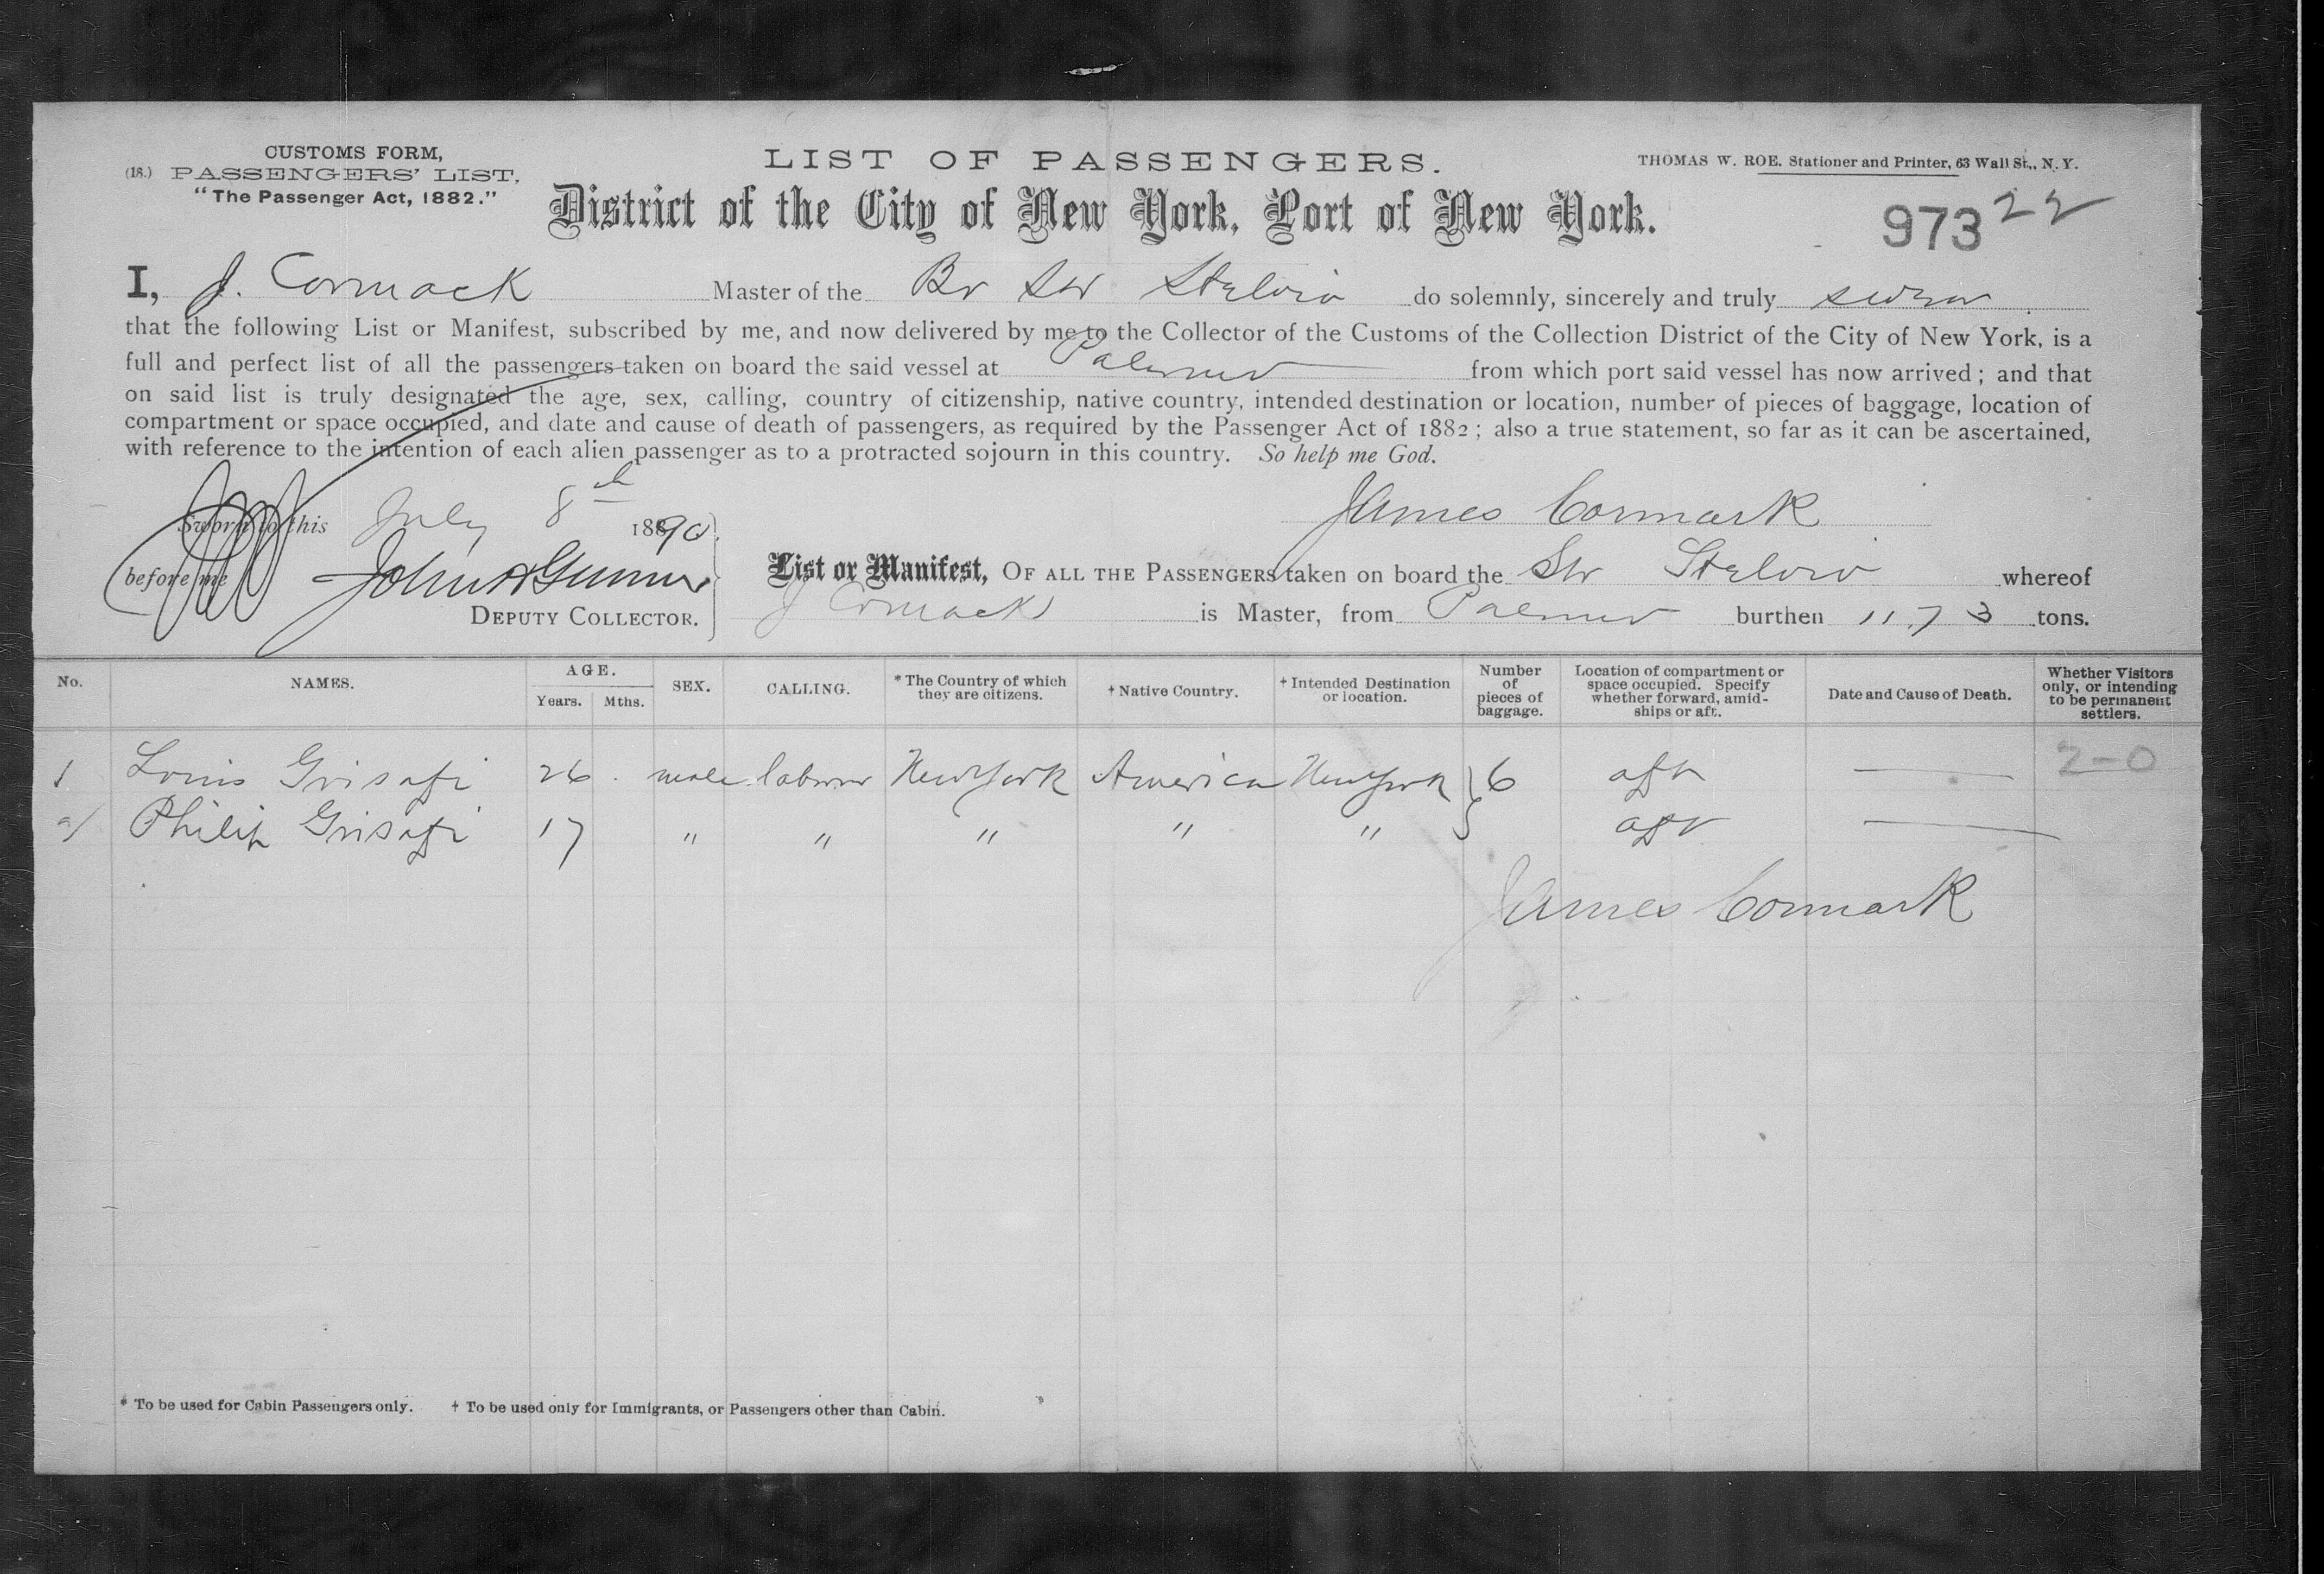 CUSTOMS FORM,
(18.) PASSENGERS' LIST,
"The Passenger Act, 1882."
LIST OF PASSENGERS.
THOMAS W. ROE. Stationer and Printer, 63 Wall St., N.Y.
District of the City of New York, Port of New York.
973 22
I, J. Cormack Master of the Br Str Stelvio do solemnly, sincerely and truly swear
that the following List or Manifest, subscribed by me, and now delivered by me to the Collector of the Customs of the Collection District of the City of New York, is a
full and perfect list of all the passengers taken on board the said vessel at Palermo from which port said vessel has now arrived; and that
on said list is truly designated the age, sex, calling, country of citizenship, native country, intended destination or location, number of pieces of baggage, location of
compartment or space occupied, and date and cause of death of passengers, as required by the Passenger Act of 1882; also a true statement, so far as it can be ascertained,
with reference to the intention of each alien passenger as to a protracted sojourn in this country. So help me God.
Sworn to this July 8th 1890.
James Cormack
before me John
DEPUTY COLLECTOR.
List or Manifest, OF ALL THE PASSENGERS taken on board the Str Stelvio whereof
J Cormack is Master, from Palermo burthen 1173 tons.
No. NAMES. AGE. Years. Mths. SEX. CALLING. * The Country of which they are citizens. † Native Country. † Intended Destination or location. Number of pieces of baggage. Location of compartment or space occupied. Specify whether forward, amid-ships or aft. Date and Cause of Death. Whether Visitors only, or intending to be permanent settlers.
1 Louis Grisafi 26 male laborer New York America New York } 6 aft — 2-0
2/ Philip Grisafi 17 " " " " " aft —
James Cormack
* To be used for Cabin Passengers only. † To be used only for Immigrants, or Passengers other than Cabin.